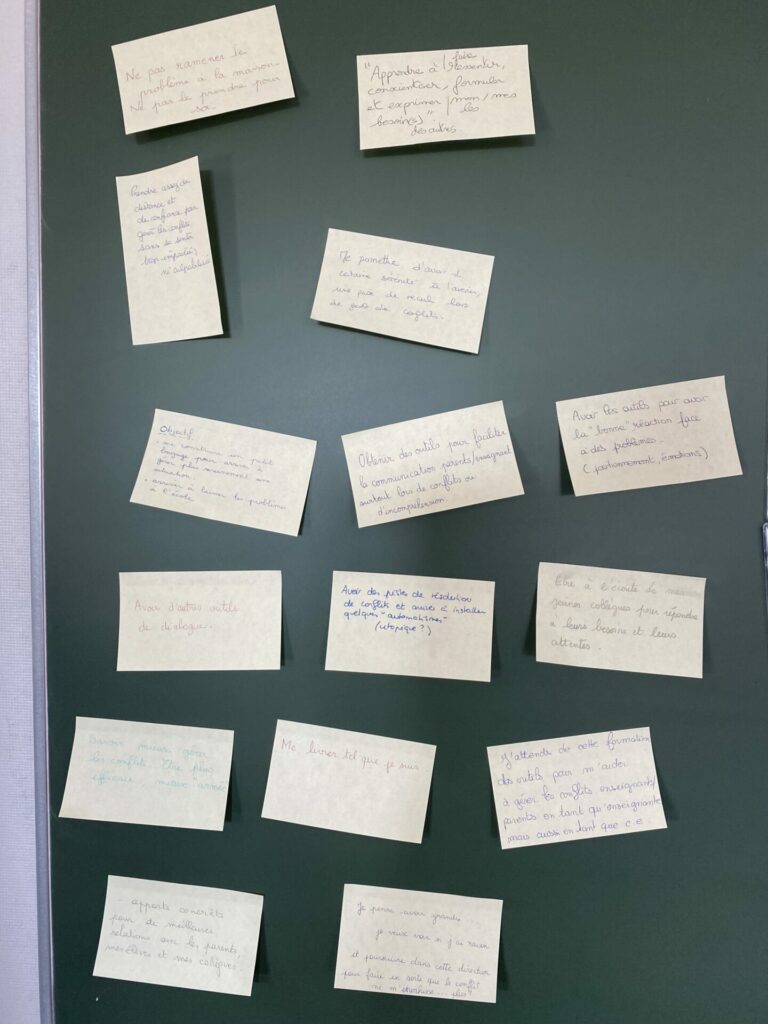 Ne pas ramener le
problème à la maison.
Ne pas le prendre pour
soi.
"Apprendre à / faire ressentir,
conscientiser, formuler
et exprimer mon/mes
les
besoin(s)".
des autres.
Prendre assez de
distance et
de confiance pour
gérer les conflits
sans se sentir
trop impacté,
ni culpabilisé
Me permettre d'avoir
certaine sérénité à l'avenir,
une prise de recul lors
de gestion de conflits.
Objectif
• me construire un petit
bagage pour arriver à
gérer plus sereinement une
situation.
• arriver à laisser les problèmes
à l'école
Obtenir des outils pour faciliter
la communication parents/enseignant
surtout lors de conflits ou
d'incompréhension.
Avoir des outils pour avoir
la "bonne" réaction face
à des problèmes.
(positionnement, émotions)
Avoir d'autres outils
de dialogue.
Avoir des pistes de résolution
de conflits et arriver à installer
quelques "automatismes"
(utopique?)
Être à l'écoute de
jeunes collègues pour répondre
à leurs besoins et leurs
attentes.
Savoir mieux gérer
les conflits. Être plus
efficace mieux armée
Me livrer tel que je suis
J'attends de cette formation
des outils pour m'aider
à gérer les conflits enseignants/
parents en tant qu'enseignante
mais aussi en tant que c.e.
- apports concrets
pour de meilleures
relations avec les parents,
mes élèves et mes collègues.
Je pense avoir grandi
je veux voir si j'ai raison
et poursuivre dans cette direction
pour faire en sorte que le conflit
ne m'atteigne... plus